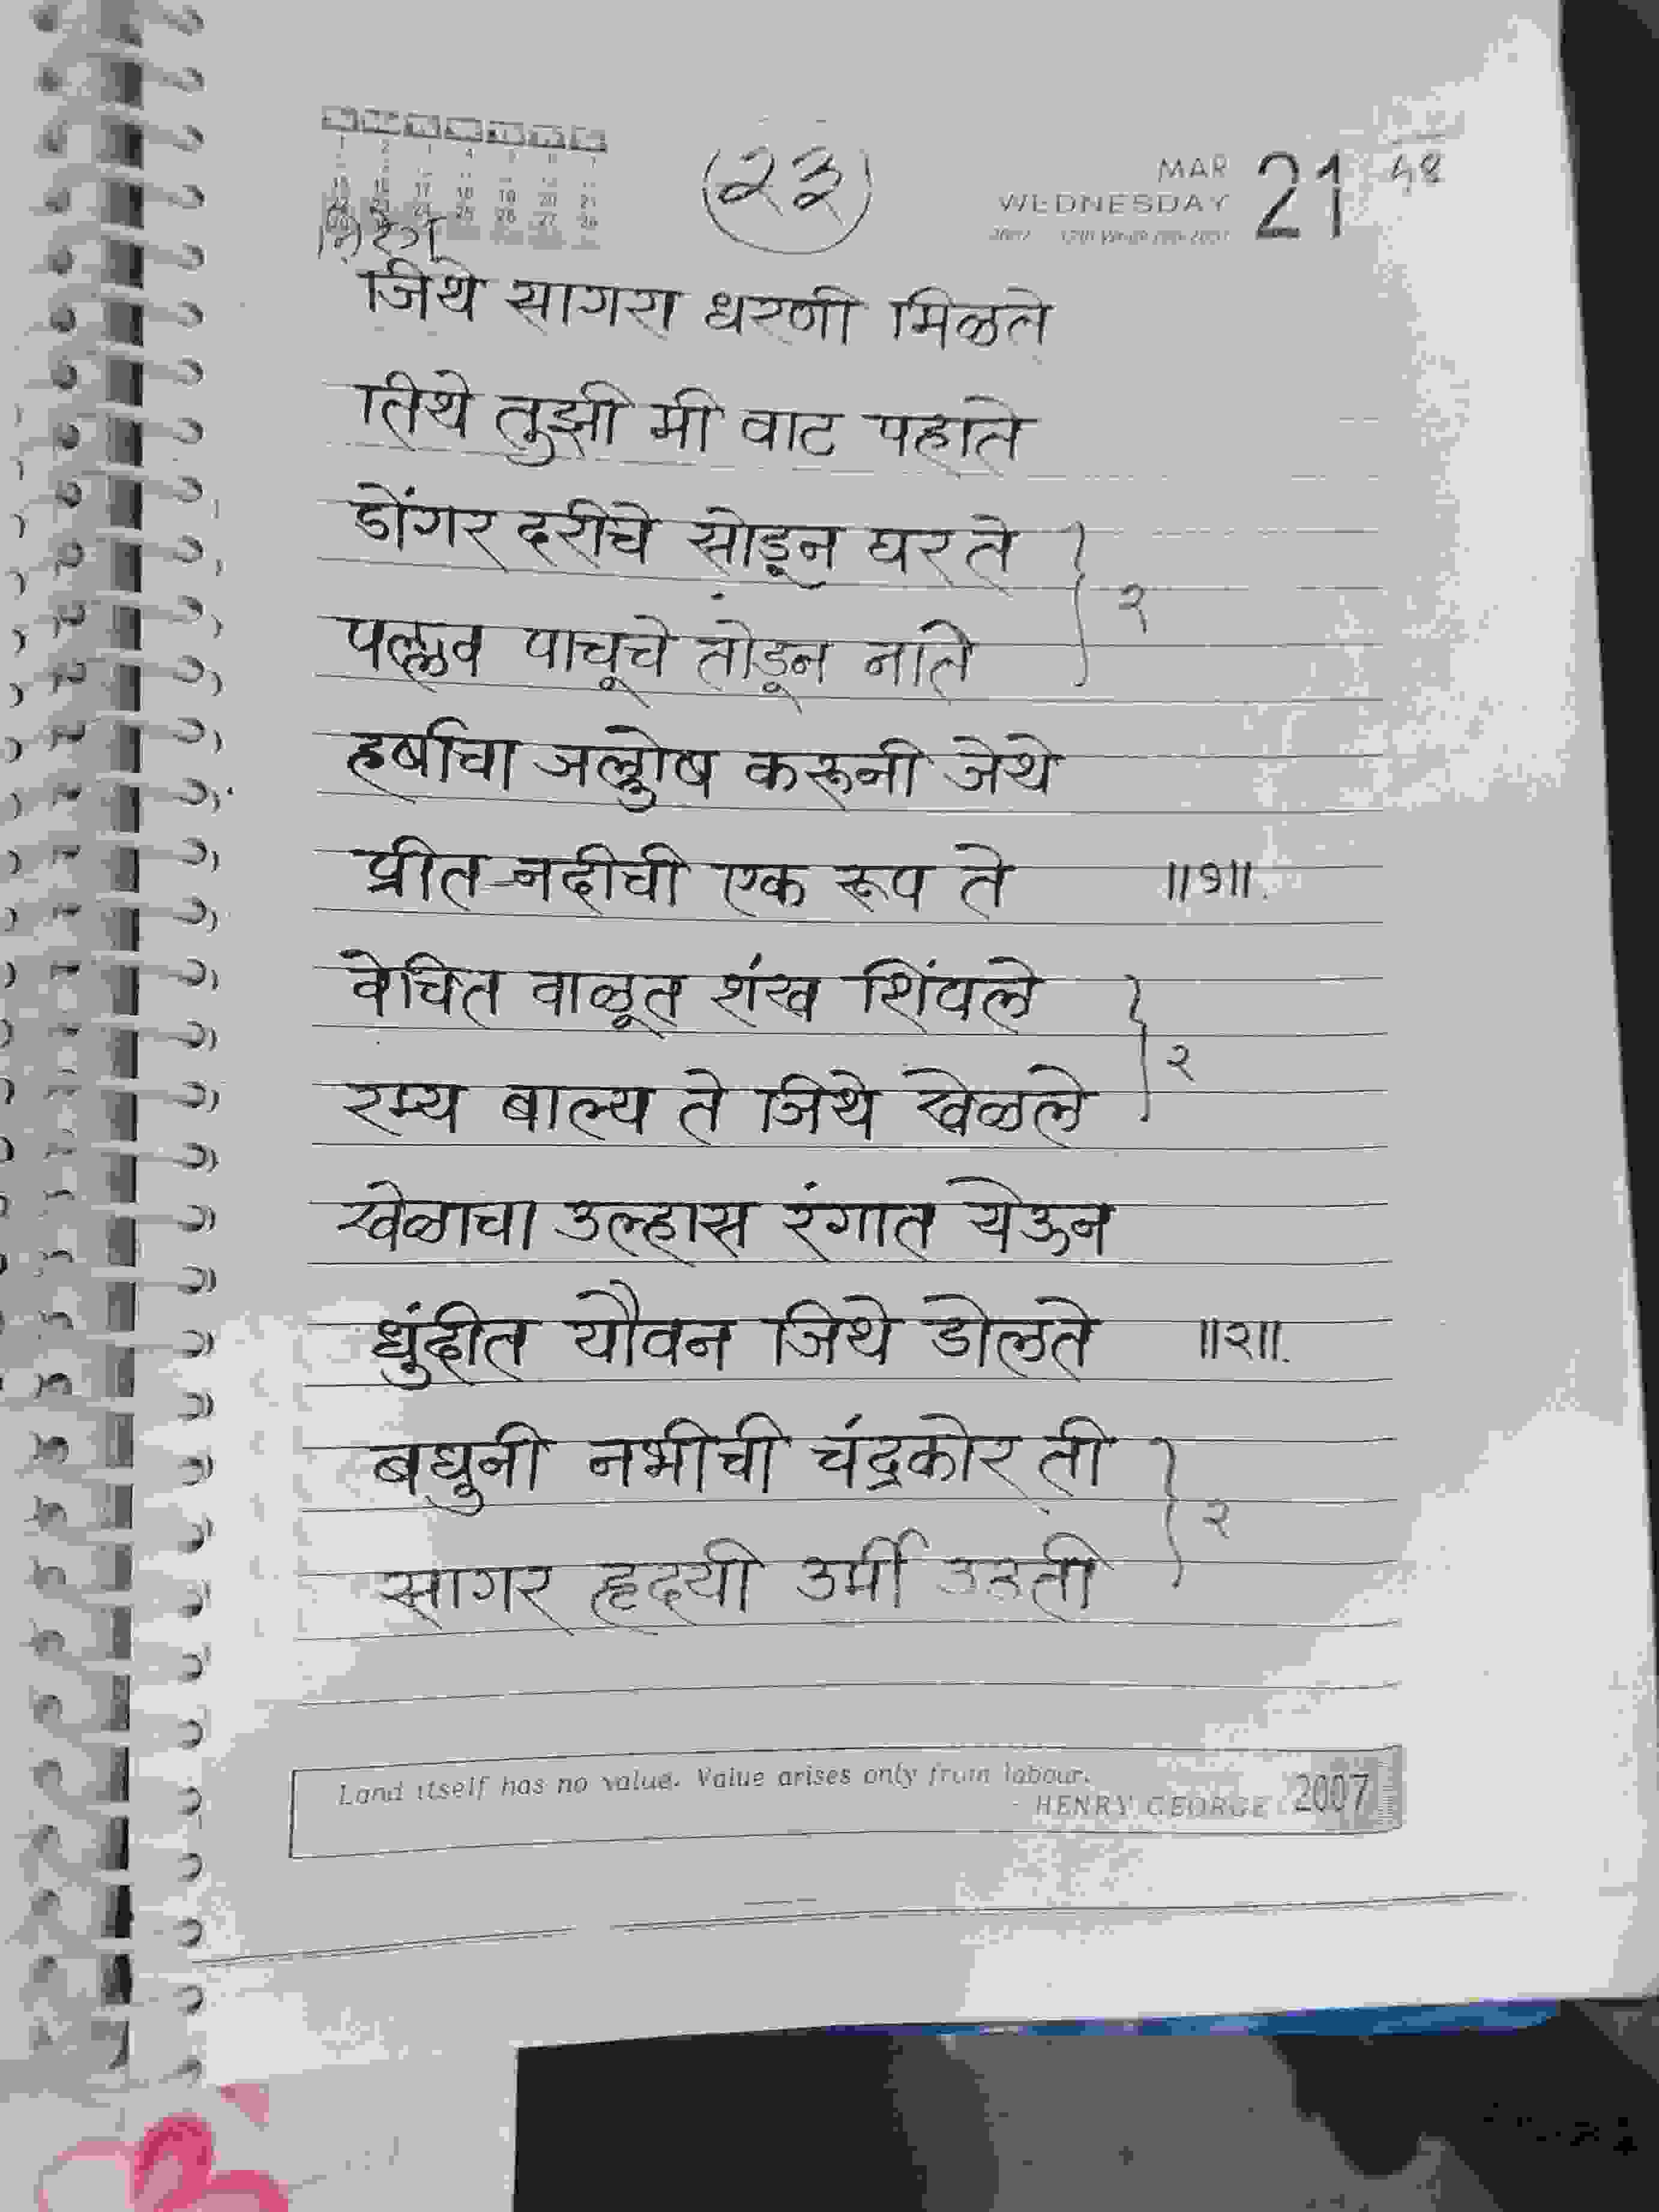 (२३)
MAR
WEDNESDAY
21
जिथे सागरा धरणी मिळते
तिथे तुझी मी वाट पहाते
डोंगर दरीचे सोडून घर ते
२
पल्लव पाचूचे तोडून नाते
हर्षाचा जल्लोष करूनी जेथे
प्रीत नदीची एक रूप ते ॥१॥.
वेचित वाळूत शंख शिंपले
२
रम्य बाल्य ते जिथे खेळले
खेळाचा उल्हास रंगात येऊन
धुंदीत यौवन जिथे डोलते ॥२॥.
बघुनी नभीची चंद्रकोर ती
२
सागर हृदयी उर्मी उठती
Land itself has no value. Value arises only from labour.
- HENRY GEORGE 2007